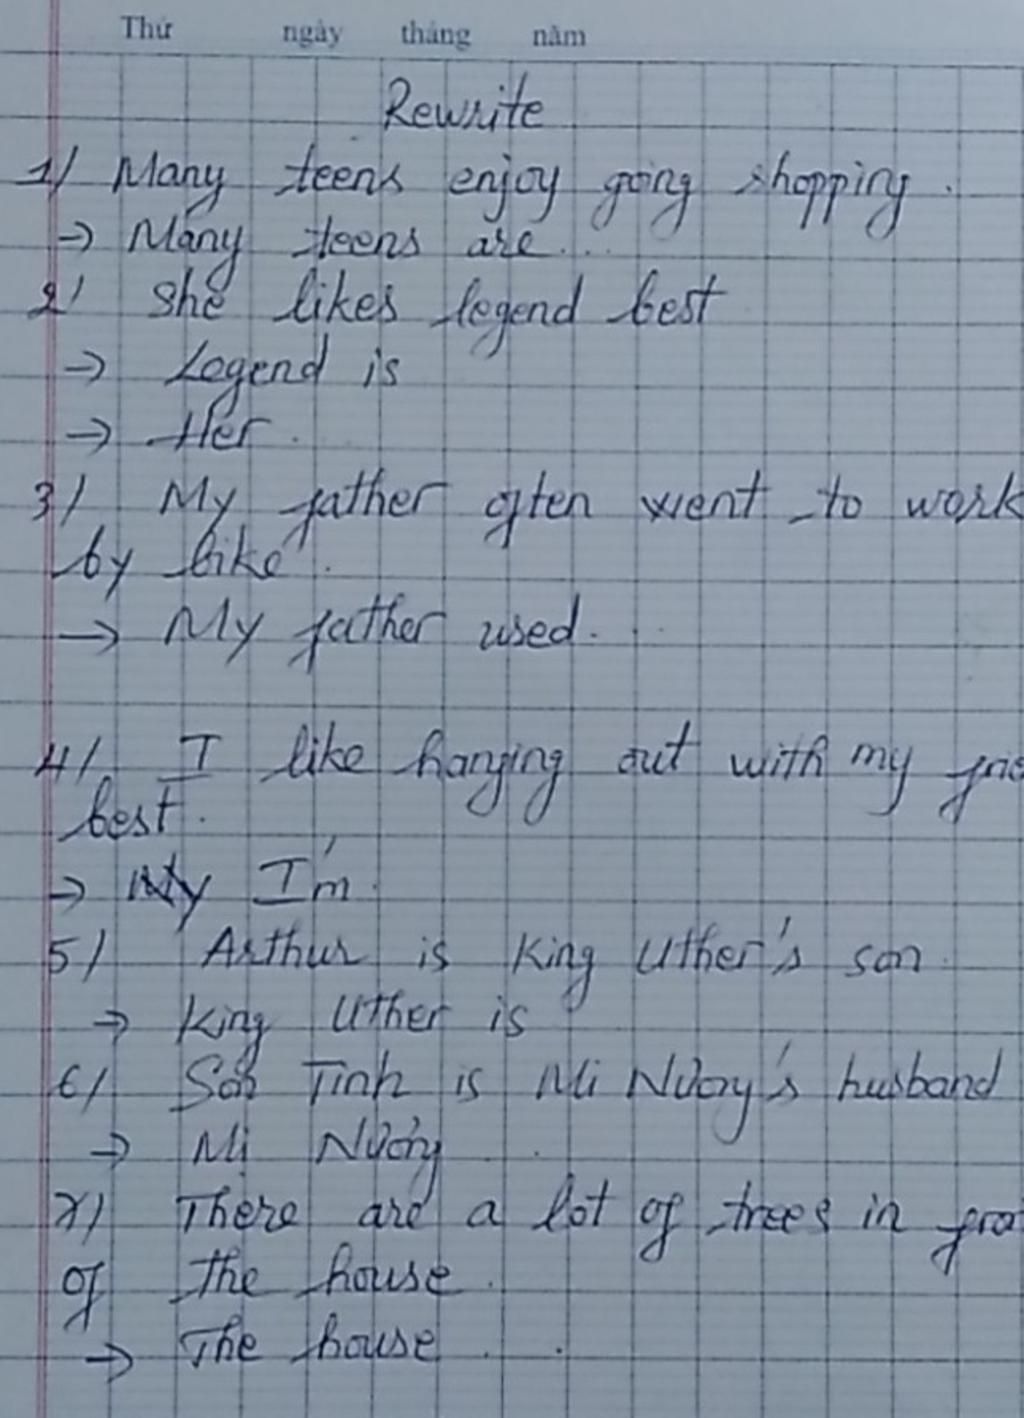 Thứ ngày tháng năm
Rewrite
1/ Many teens enjoy going shopping.
→ Many teens are...
2/ She likes legend best
→ Legend is
→ Her.
3/ My father often went to work
by bike.
→ My father used...
4/ I like hanging out with my
best.
→ I'm
5/ Arthur is King Uther's son.
→ King Uther is
6/ Sơn Tinh is Mi Nương's husband
→ Mi Nương ..
7/ There are a lot of trees in
of the house.
→ The house ..